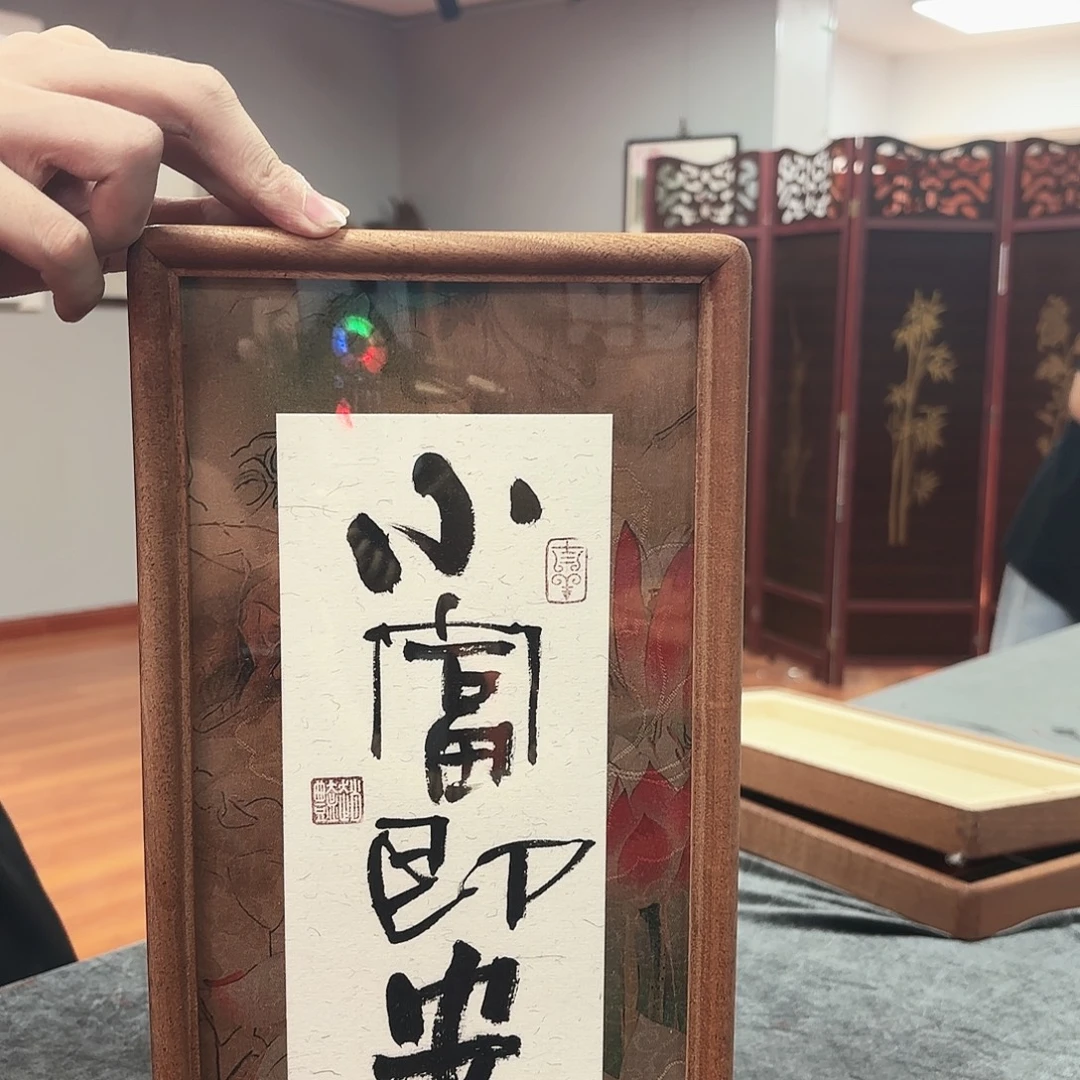 小富即安